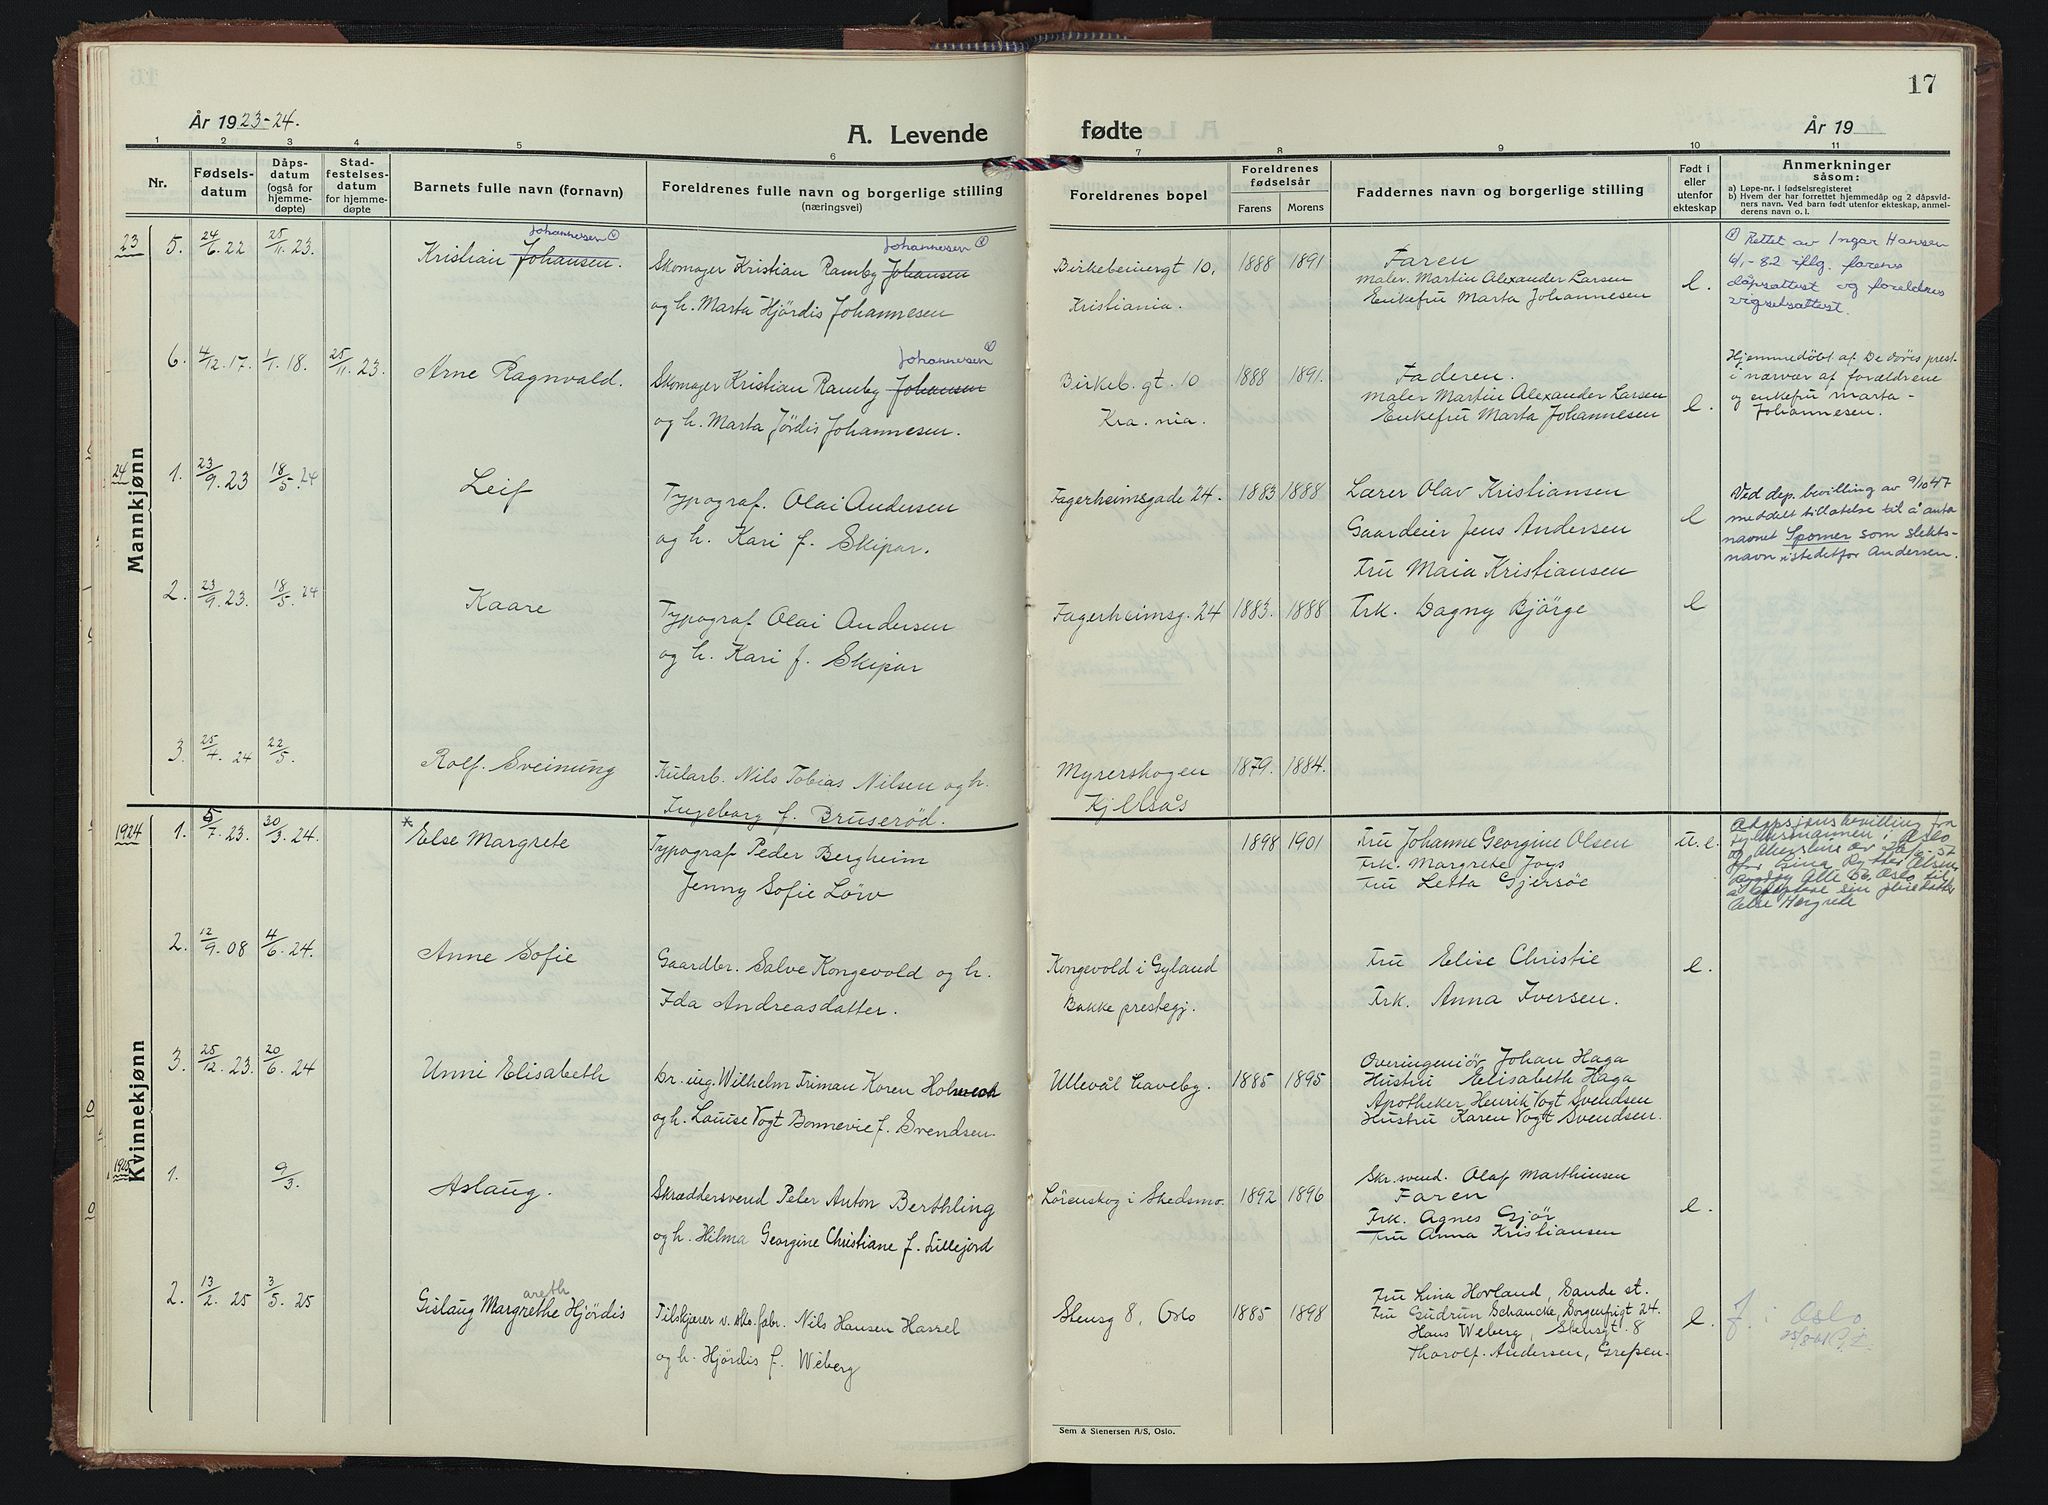 År 1923-24.
A. Levende
1 2 3 4 5 6
Nr. Fødselsdatum Dåpsdatum (også for hjemmedøpte) Stadfestelsesdatum for hjemmedøpte Barnets fulle navn (fornavn) Foreldrenes fulle navn og borgerlige stilling (næringsvei)
Johannesen Johannesen
23 5. 24/6.22 25/11.23. Kristian Johansen. Skomager Kristian Ramby Johansen
og h. Marta Hjördis Johannesen
Johannesen
6. 4/12.17. 1/1.18. 25/11.23. Arne Ragnvald. Skomager Kristian Ramby Johansen
og h. Marta Jördis Johannesen.
Mannkjønn
24 1. 23/9.23 18/5.24 Leif Typograf. Olai Andersen
og h. Kari f. Skipar.
2. 23/9.23. 18/5.24 Kaare Typograf Olai Andersen
og h. Kari f. Skipar
3. 25/4.24 22/5. Rolf. Sveinung Kularb. Nils Tobias Nilsen og h.
Ingeborg f. Bruserød.
1924 1. 5/7.23. 30/3.24. * Else Margrete Typograf Peder Bergheim
Jenny Sofie Löw
2. 12/9.08 4/6.24. Anne Sofie Gaardbr. Salve Kongevold og h.
Ida Andreasdatter.
Kvinnekjønn
3. 25/12.23. 20/6.24 Unni Elisabeth Dr. ing. Wilhelm Triman Koren
og h. Louise Vogt Bonnevie f. Svendsen.
1925 1. 9/3. Aslaug. Skræddersvend Peter Anton Berthling
og h. Hilma Georgine Christiane f. Lillejord
areth
2. 13/2.25 3/5.25 Gislaug Margrethe Hjördis Tilskjærer v. sko.fabr. Nils Hansen Hassel
og h. Hjördis f. Wéberg
17
fødte
År 19
7 8 9 10 11
Foreldrenes bopel Foreldrenes fødselsår Farens Morens Faddernes navn og borgerlige stilling Født i eller utenfor ekteskap Anmerkninger såsom:
a) Løpe-nr. i fødselsregisteret
b) Hvem der har forrettet hjemmedåp og 2 dåpsvidners navn. Ved barn født utenfor ekteskap, anmelderens navn o. l.
Birkebeinergt 10, 1888 1891 Faren Rettet av Ingar Hansen
Kristiania. Maler. Martin Alexander Larsen 6/1-82 iflg. farens
Enkefru Marta Johannesen e. dåpsattest og foreldres
vigselsattest.
Birkeb. gt. 10 1888 1891. Faderen. Hjemmedöbt af De døves prest
Kra.nia. Maler Martin Alexander Larsen i nærvær af forældrene
Enkefru Marta Johannesen e. og enkefru Marta
Johannesen.
Fagerheimsgade 24. 1883 1888 Lærer Olav Kristiansen Ved dep. bevilling av 9/10 47
Gaardeier Jens Andersen e meddelt tillatelse til å anta
Fru Maia Kristiansen navnet Spomer som slekts-
navn istedetfor Andersen.
Fagerheimsg. 24 1883. 1888 Frk. Dagny Bjørge e
Myrerskogen 1879. 1884.
Kjelsås
1898 1901 Fru Johanne Georgine Olsen u. e. Adopsjonsbevilling fra
Frk. Margrete Joys fylkesmannen i Oslo
Fru Letta Gjersøe
Else Margrete
Kongevold i Gyland Fru Elise Christie e.
Bakke prestegj. Frk. Anna Iversen.
Ullevål haveby. 1885 1895 Overingeniör Johan Haga
Hustru Elisabeth Haga
Apotheker Henrik Vogt Svendsen
Hustru Karen Vogt Svendsen.
Lørenskog i Skedsmo. 1892 1896 Skr.svend. Olaf Marthinsen
Faren
Frk. Agnes Gjør e.
Fru Anna Kristiansen
Stensg 8, Oslo 1885 1898 Fru Lina Hovland, Sande st.
Fru Gudrun Schancke, Borgenfrigt 24.
Hans Weberg, Stensgt. 8 e. J. i Oslo
Thorolf. Andersen, Grefsen.
Sem & Stenersen A/S, Oslo.